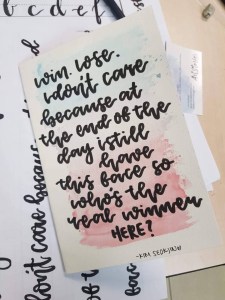 b c d e f
win. lose.
i don't care
because at
the end of the
day i still
have
this face so
who's the
real winner
HERE?
-KIM SEOKJIN
don't care because